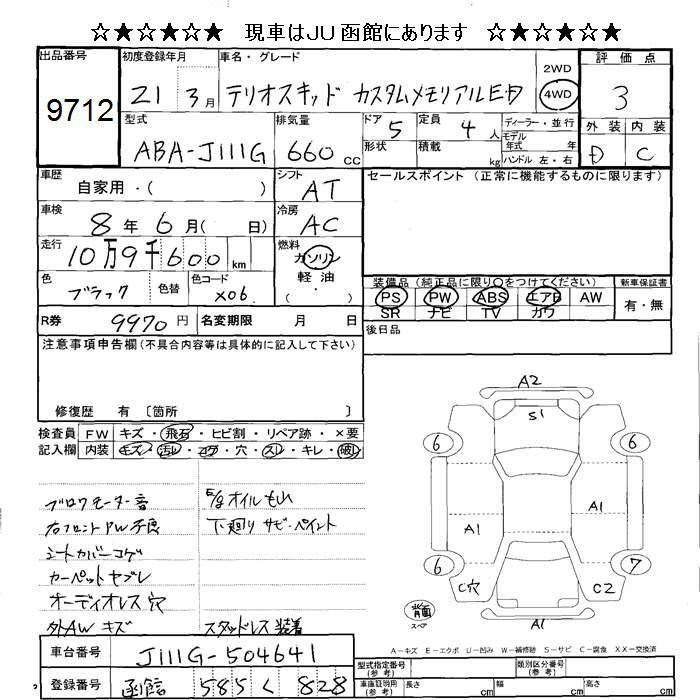 ☆★☆★☆ 現車はJU函館にあります ☆★☆★☆
出品番号 初度登録年月 車名・グレード 2WD 評価点
9712 21 3月 テリオスキッド カスタムメモリアルED 4WD 3
型式 排気量 ドア 5 定員 4人 ディーラー・並行 外装 内装
ABA-J111G 660cc 形状 積載 kg モデル年式 年 ハンドル 左・右 D C
車歴 自家用・( ) シフト AT セールスポイント(正常に機能するものに限ります)
車検 8年6月( 日) 冷房 AC
走行 10万9千600km 燃料 ガソリン 軽油 ・( )
色 ブラック 色替 色コード X06 装備品(純正品に限り○をつけてください) 新車保証書
PS PW ABS エアB AW 有・無
SR ナビ TV カワ
R券 9970円 名変期限 月 日 後日品
注意事項申告欄(不具合内容等は具体的に記入して下さい)
修復歴 有 〔箇所 〕
検査員 FW キズ・飛石・ヒビ割・リペア跡・×要
記入欄 内装 キズ・汚レ・コゲ・穴・スレ・キレ・破レ
ブロワモーター音 E/gオイルもれ
右フロントPW不良 下廻り サビ・ペイント
シートカバーコゲ
カーペットヤブレ
オーディオレス穴
外AWキズ スタッドレス装着
A2
S1
6 6
A1
A1
6 7
C穴 C2
背面 スペア A1
A-キズ E-エクボ U-凹み W-補修跡 S-サビ C-腐食 XX-交換済
車台番号 J111G-504641 型式指定番号(参考) 類別区分番号(参考)
登録番号 函館 585 く 828 車庫証明用(参考) 長さ cm 幅 cm 高さ cm